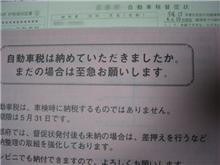 自動車税督促状
自動車税は納めていただきましたか。
まだの場合は至急お願いします。
動車税は、車検時に納税するものではありません。
限は5月31日です。
府では、督促状発付後も未納の場合は、差押えを行うなど
納整理の取組を強化しております。
ビニでも納付できますので、よろしくお願いします